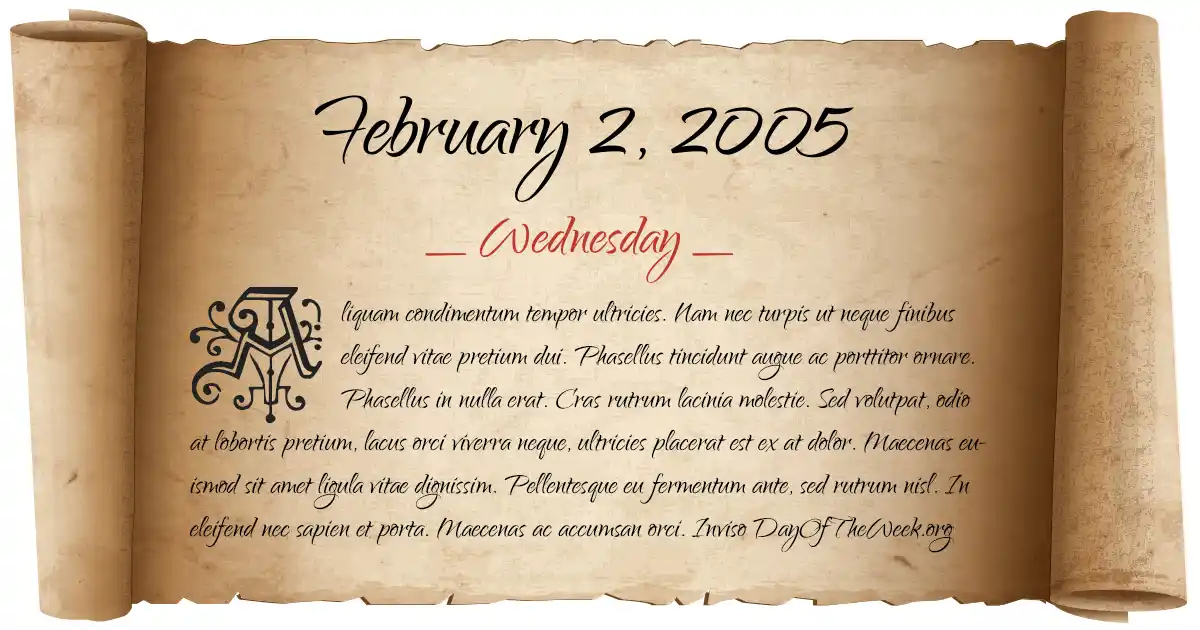 February 2, 2005
— Wednesday —
Aliquam condimentum tempor ultricies. Nam nec turpis ut neque finibus
eleifend vitae pretium dui. Phasellus tincidunt augue ac porttitor ornare.
Phasellus in nulla erat. Cras rutrum lacinia molestie. Sed volutpat, odio
at lobortis pretium, lacus orci viverra neque, ultricies placerat est ex at dolor. Maecenas eu-
ismod sit amet ligula vitae dignissim. Pellentesque eu fermentum ante, sed rutrum nisl. In
eleifend nec sapien et porta. Maecenas ac accumsan orci. Inviso DayOfTheWeek.org